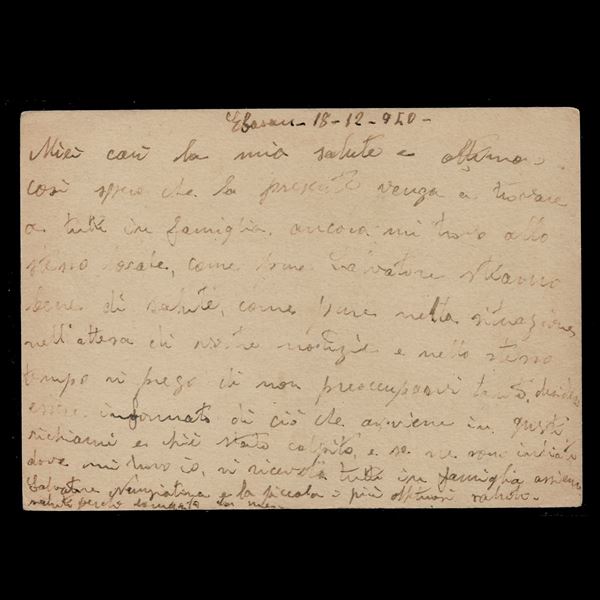 Elbasan - 18 - 12 - 940 -
Miei cari la mia salute e ottima
così spero che la presente venga a trovare
a tutti in famiglia. ancora mi trovo allo
stesso locale, come pure Salvatore stiamo
bene di salute, come pure nella situazione,
nell'attesa di vostre notizie e nello stesso
tempo vi prego di non preoccuparvi
essere informato di ciò che avviene in questi
richiami e più stato colpito, e se ne sono
dove mi trovo io, vi tutti in famiglia assieme
Salvatore Nunziatina e la piccola i più affettuosi saluti.
saluti